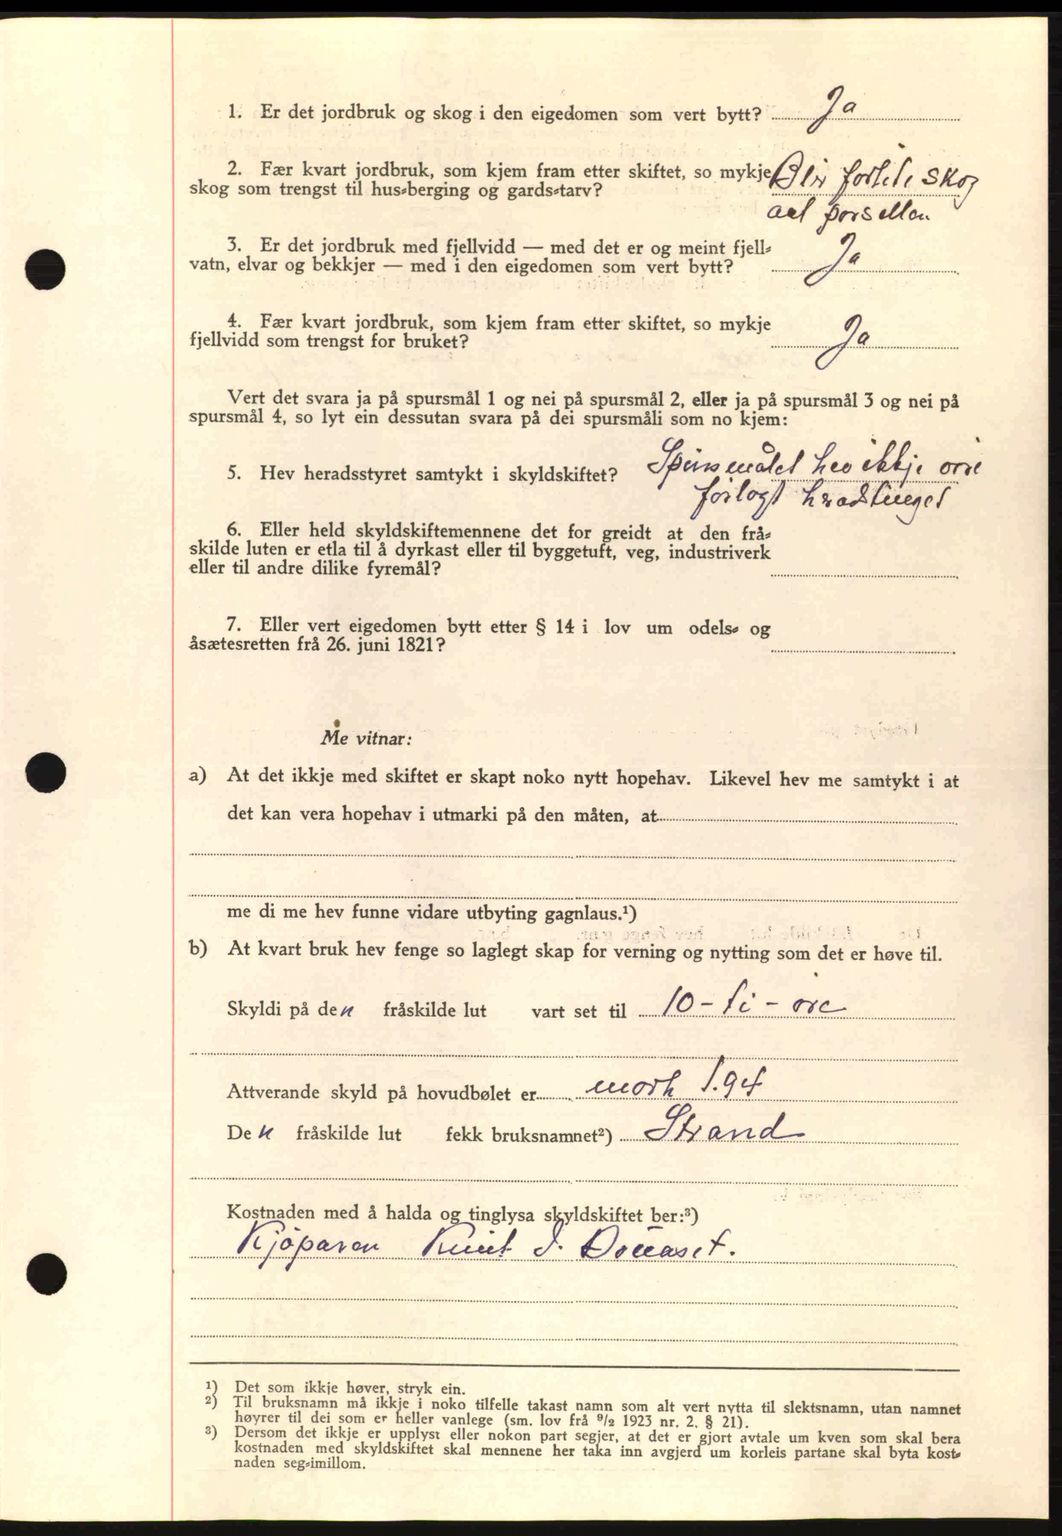 1. Er det jordbruk og skog i den eigedomen som vert bytt? Ja
2. Fær kvart jordbruk, som kjem fram etter skiftet, so mykje
skog som trengst til hus-berging og gards-tarv? Blir forlite skog
ael porsellen
3. Er det jordbruk med fjellvidd — med det er og meint fjell-
vatn, elvar og bekkjer — med i den eigedomen som vert bytt? Ja
4. Fær kvart jordbruk, som kjem fram etter skiftet, so mykje
fjellvidd som trengst for bruket? Ja
Vert det svara ja på spursmål 1 og nei på spursmål 2, eller ja på spursmål 3 og nei på
spursmål 4, so lyt ein dessutan svara på dei spursmåli som no kjem:
5. Hev heradsstyret samtykt i skyldskiftet? Spursmålet hev ikkje
forlagt
6. Eller held skyldskiftemennene det for greidt at den frå-
skilde luten er etla til å dyrkast eller til byggetuft, veg, industriverk
eller til andre dilike fyremål?
7. Eller vert eigedomen bytt etter § 14 i lov um odels- og
åsætesretten frå 26. juni 1821?
Me vitnar:
a) At det ikkje med skiftet er skapt noko nytt hopehav. Likevel hev me samtykt i at
det kan vera hopehav i utmarki på den måten, at
me di me hev funne vidare utbyting gagnlaus.¹)
b) At kvart bruk hev fenge so laglegt skap for verning og nytting som det er høve til.
Skyldi på den fråskilde lut vart set til 10 - ti - øre
Attverande skyld på hovudbølet er mork 1.94
Den fråskilde lut fekk bruksnamnet²) Strand
Kostnaden med å halda og tinglysa skyldskiftet ber:³)
Kjøparen Knut J.
¹) Det som ikkje høver, stryk ein.
²) Til bruksnamn må ikkje i noko tilfelle takast namn som alt vert nytta til slektsnamn, utan namnet
høyrer til dei som er heller vanlege (sm. lov frå ⁹/₂ 1923 nr. 2. § 21).
³) Dersom det ikkje er upplyst eller nokon part segjer, at det er gjort avtale um kven som skal bera
kostnaden med skyldskiftet skal mennene her taka inn avgjerd um korleis partane skal byta kost-
naden seg-imillom.